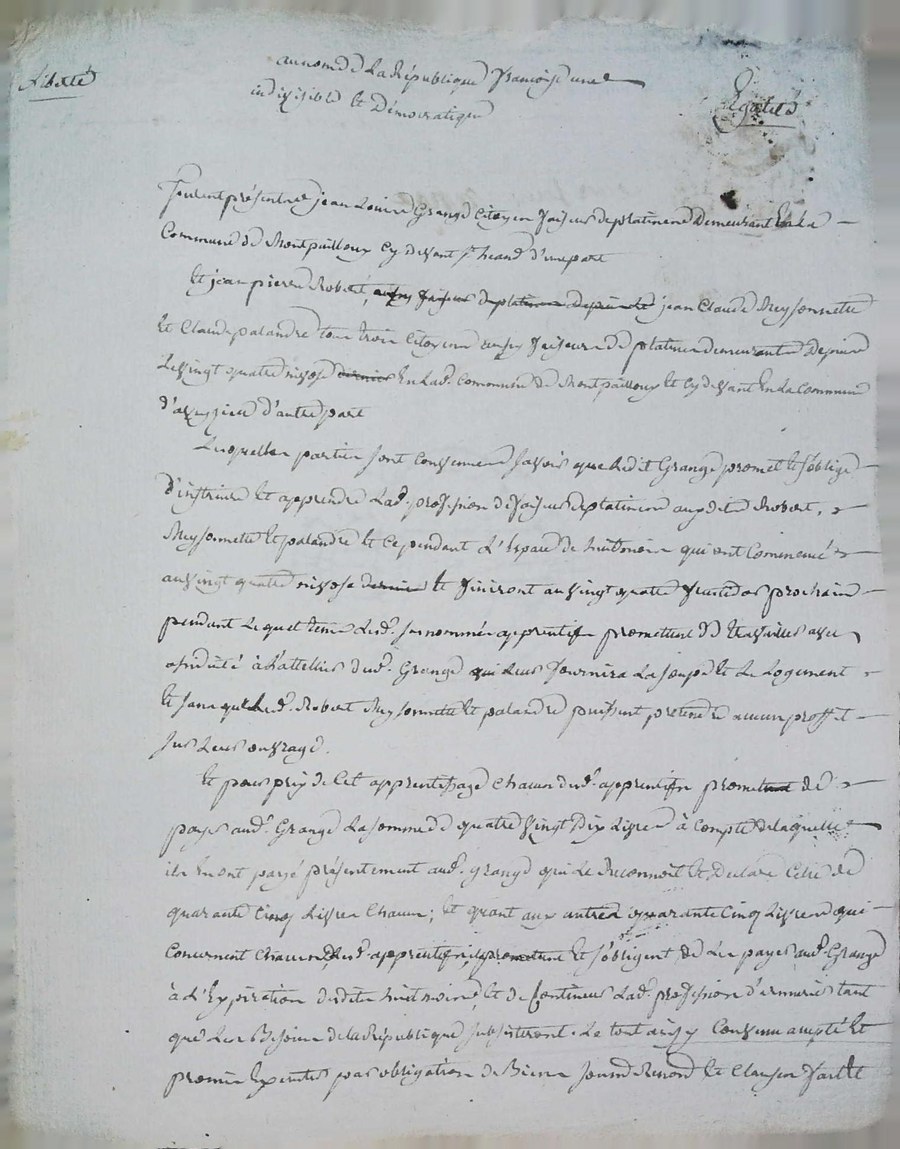 Liberté
au nom de La République françoise une
indivisible et Démocratique
Egalité
furent présents jean Louis Grange Citoyen faiseur de platines Demeurant En La
Commune de Montpailloux Cy devant St heand d'une part
Et jean pierre Robert, aussy faiseur de platines depuis le jean Claude Meysonnette
Et Claude palandre tous trois Citoyens aussy faiseurs de platines demeurants Depuis
Le vingt quatre nivose dernier En Lad. Commune de Montpailloux Et Cy devant En La Commune
d'autre part
Lesquelles parties sont Convenues savoir que Ledit Grange promet Et s'oblige
D'instruire Et apprendre Lad. profession de faiseur de platines auxdits Robert,
Meysonnette Et palandre Et Ce pendant L'Espace de huit mois qui ont Commencé
au vingt quatre nivose dernier Et finiront au vingt quatre fructidor prochain
pendant Lequel tems Lesd. susnommés apprentifs promettent de travailler avec
assiduité à L'attellier dud. Grange qui Leur fournira La soupe Et Le Logement
Et sans que Lesd. Robert Meysonnette Et palandre puissent pretendre aucun proffit
sur Leurs ouvrage.
Et pour prix de Cet apprentissage Chacun desd. apprentifs promettent de
payer aud. Grange La somme de quatre vingt Dix Livres à Compte de laquelle
ils En ont payé présentement aud. grange qui Le Reconnoit Et Declare Celle de
quarante Cinq Livres Chacun; Et quant aux autres quarante Cinq Livres qui
Concernent Chacun desd. apprentifs ils promettent Et s'obligent de Les payer aud. Grange
à L'Expiration desdits huit mois Et de Continuer Lad. profession d'armurier tant
que Les Besoins de la République subsisteront. Le tout ainsy Convenu accepté Et
promis Executer par obligation de Biens soumis Renoncé Et Clauses fait Et